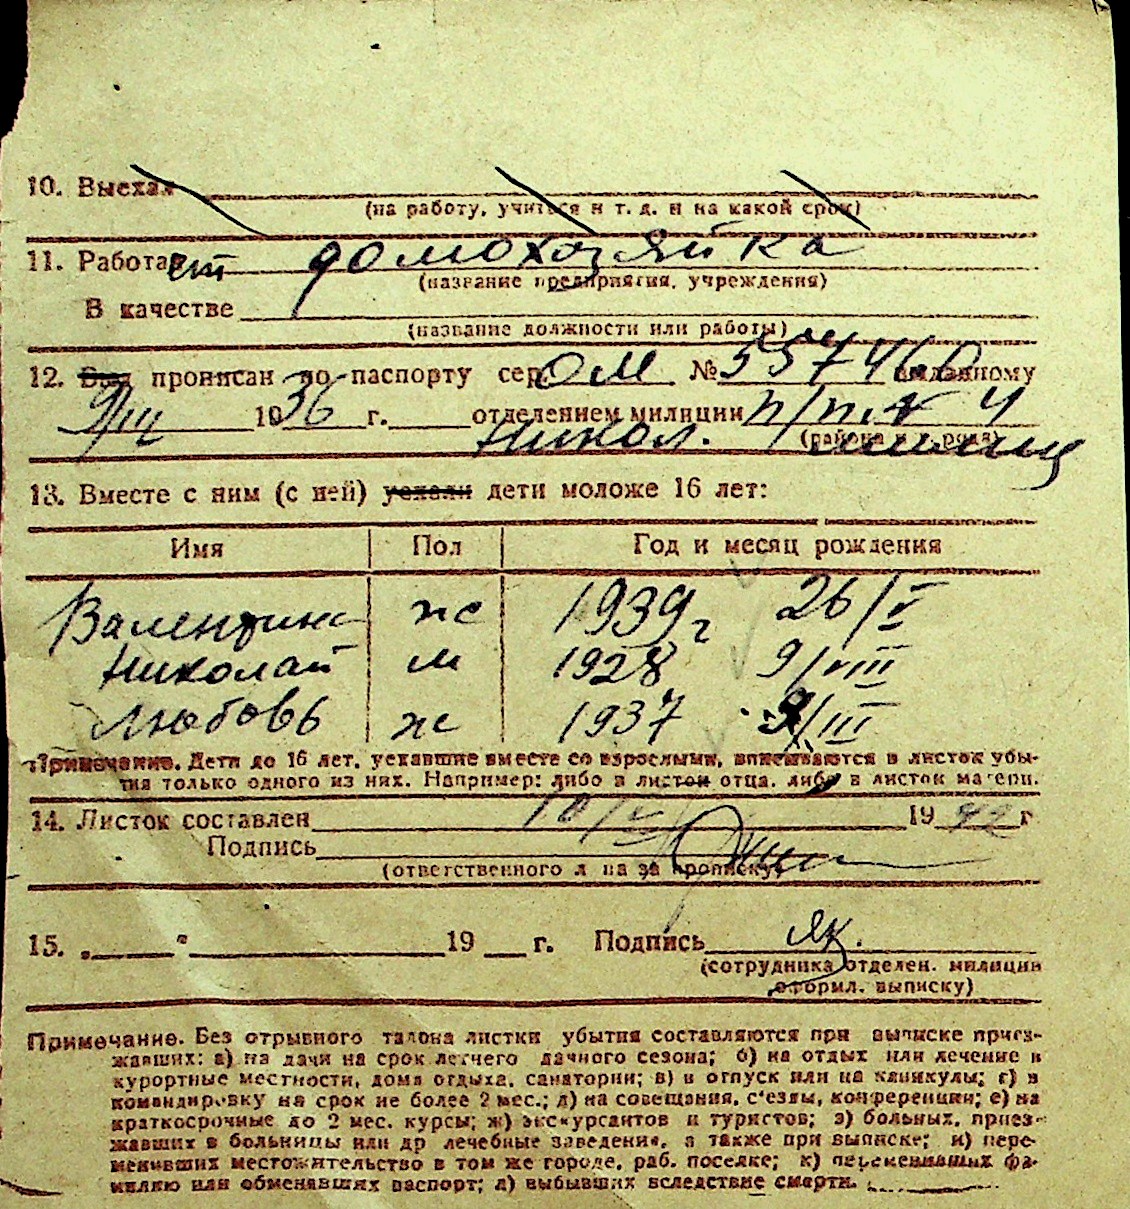 10. Выехал
(на работу, учиться и т. д. и на какой срок)
11. Работает домохозяйка
(название предприятия, учреждения)
В качестве
(название должности или работы)
12. Был прописан по паспорту сер. ОМ № 557460 выданному
9/III 1936 г. отделением милиции
Никол. милиц
(района и города)
13. Вместе с ним (с ней) уехали дети моложе 16 лет:
Имя Пол Год и месяц рождения
Валентина ж 1939 г 26/V
Николай м 1928 9/VIII
Любовь ж 1937 9/III
Примечание. Дети до 16 лет, уехавшие вместе со взрослыми, вписываются в листок убы-
тия только одного из них. Например: либо в листок отца, либо в листок матери.
14. Листок составлен 10/V 1942 г
Подпись
(ответственного л на за прописку)
15. „ " 19 г. Подпись Як.
(сотрудника отделен. милиции
оформл. выписку)
Примечание. Без отрывного талона листки убытия составляются при выписке приез-
жавших: а) на дачи на срок летнего дачного сезона; б) на отдых или лечение в
курортные местности, дома отдыха, санатории; в) в отпуск или на каникулы; г) в
командировку на срок не более 2 мес.; д) на совещания, с'езды, конференции; е) на
краткосрочные до 2 мес. курсы; ж) экскурсантов и туристов; з) больных, приез-
жавших в больницы или др лечебные заведения, а также при выписке; и) пере-
менивших местожительство в том же городе, раб. поселке; к) переменивших фа-
милию или обменявших паспорт; л) выбывших вследствие смерти.